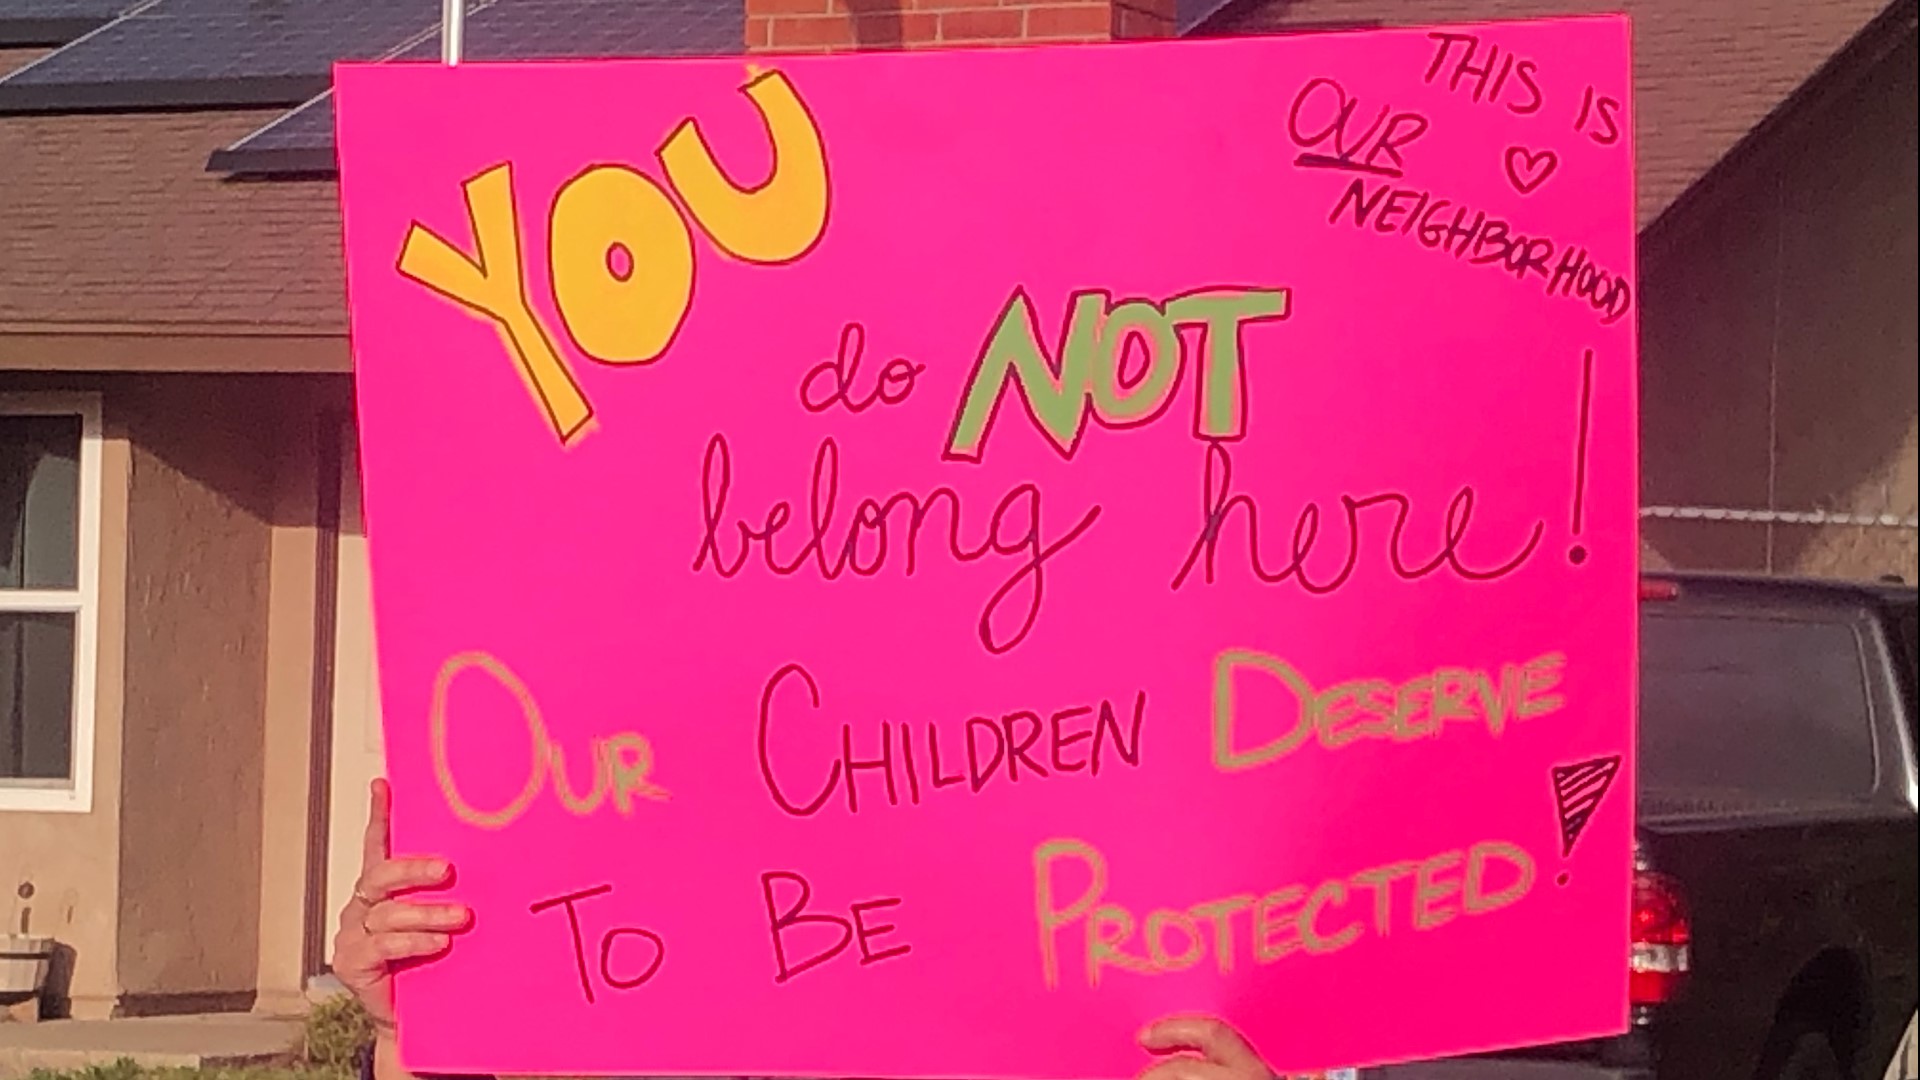 THIS IS
OUR ♡
NEIGHBORHOOD
YOU
do NOT
belong here!
OUR CHILDREN DESERVE
TO BE PROTECTED!